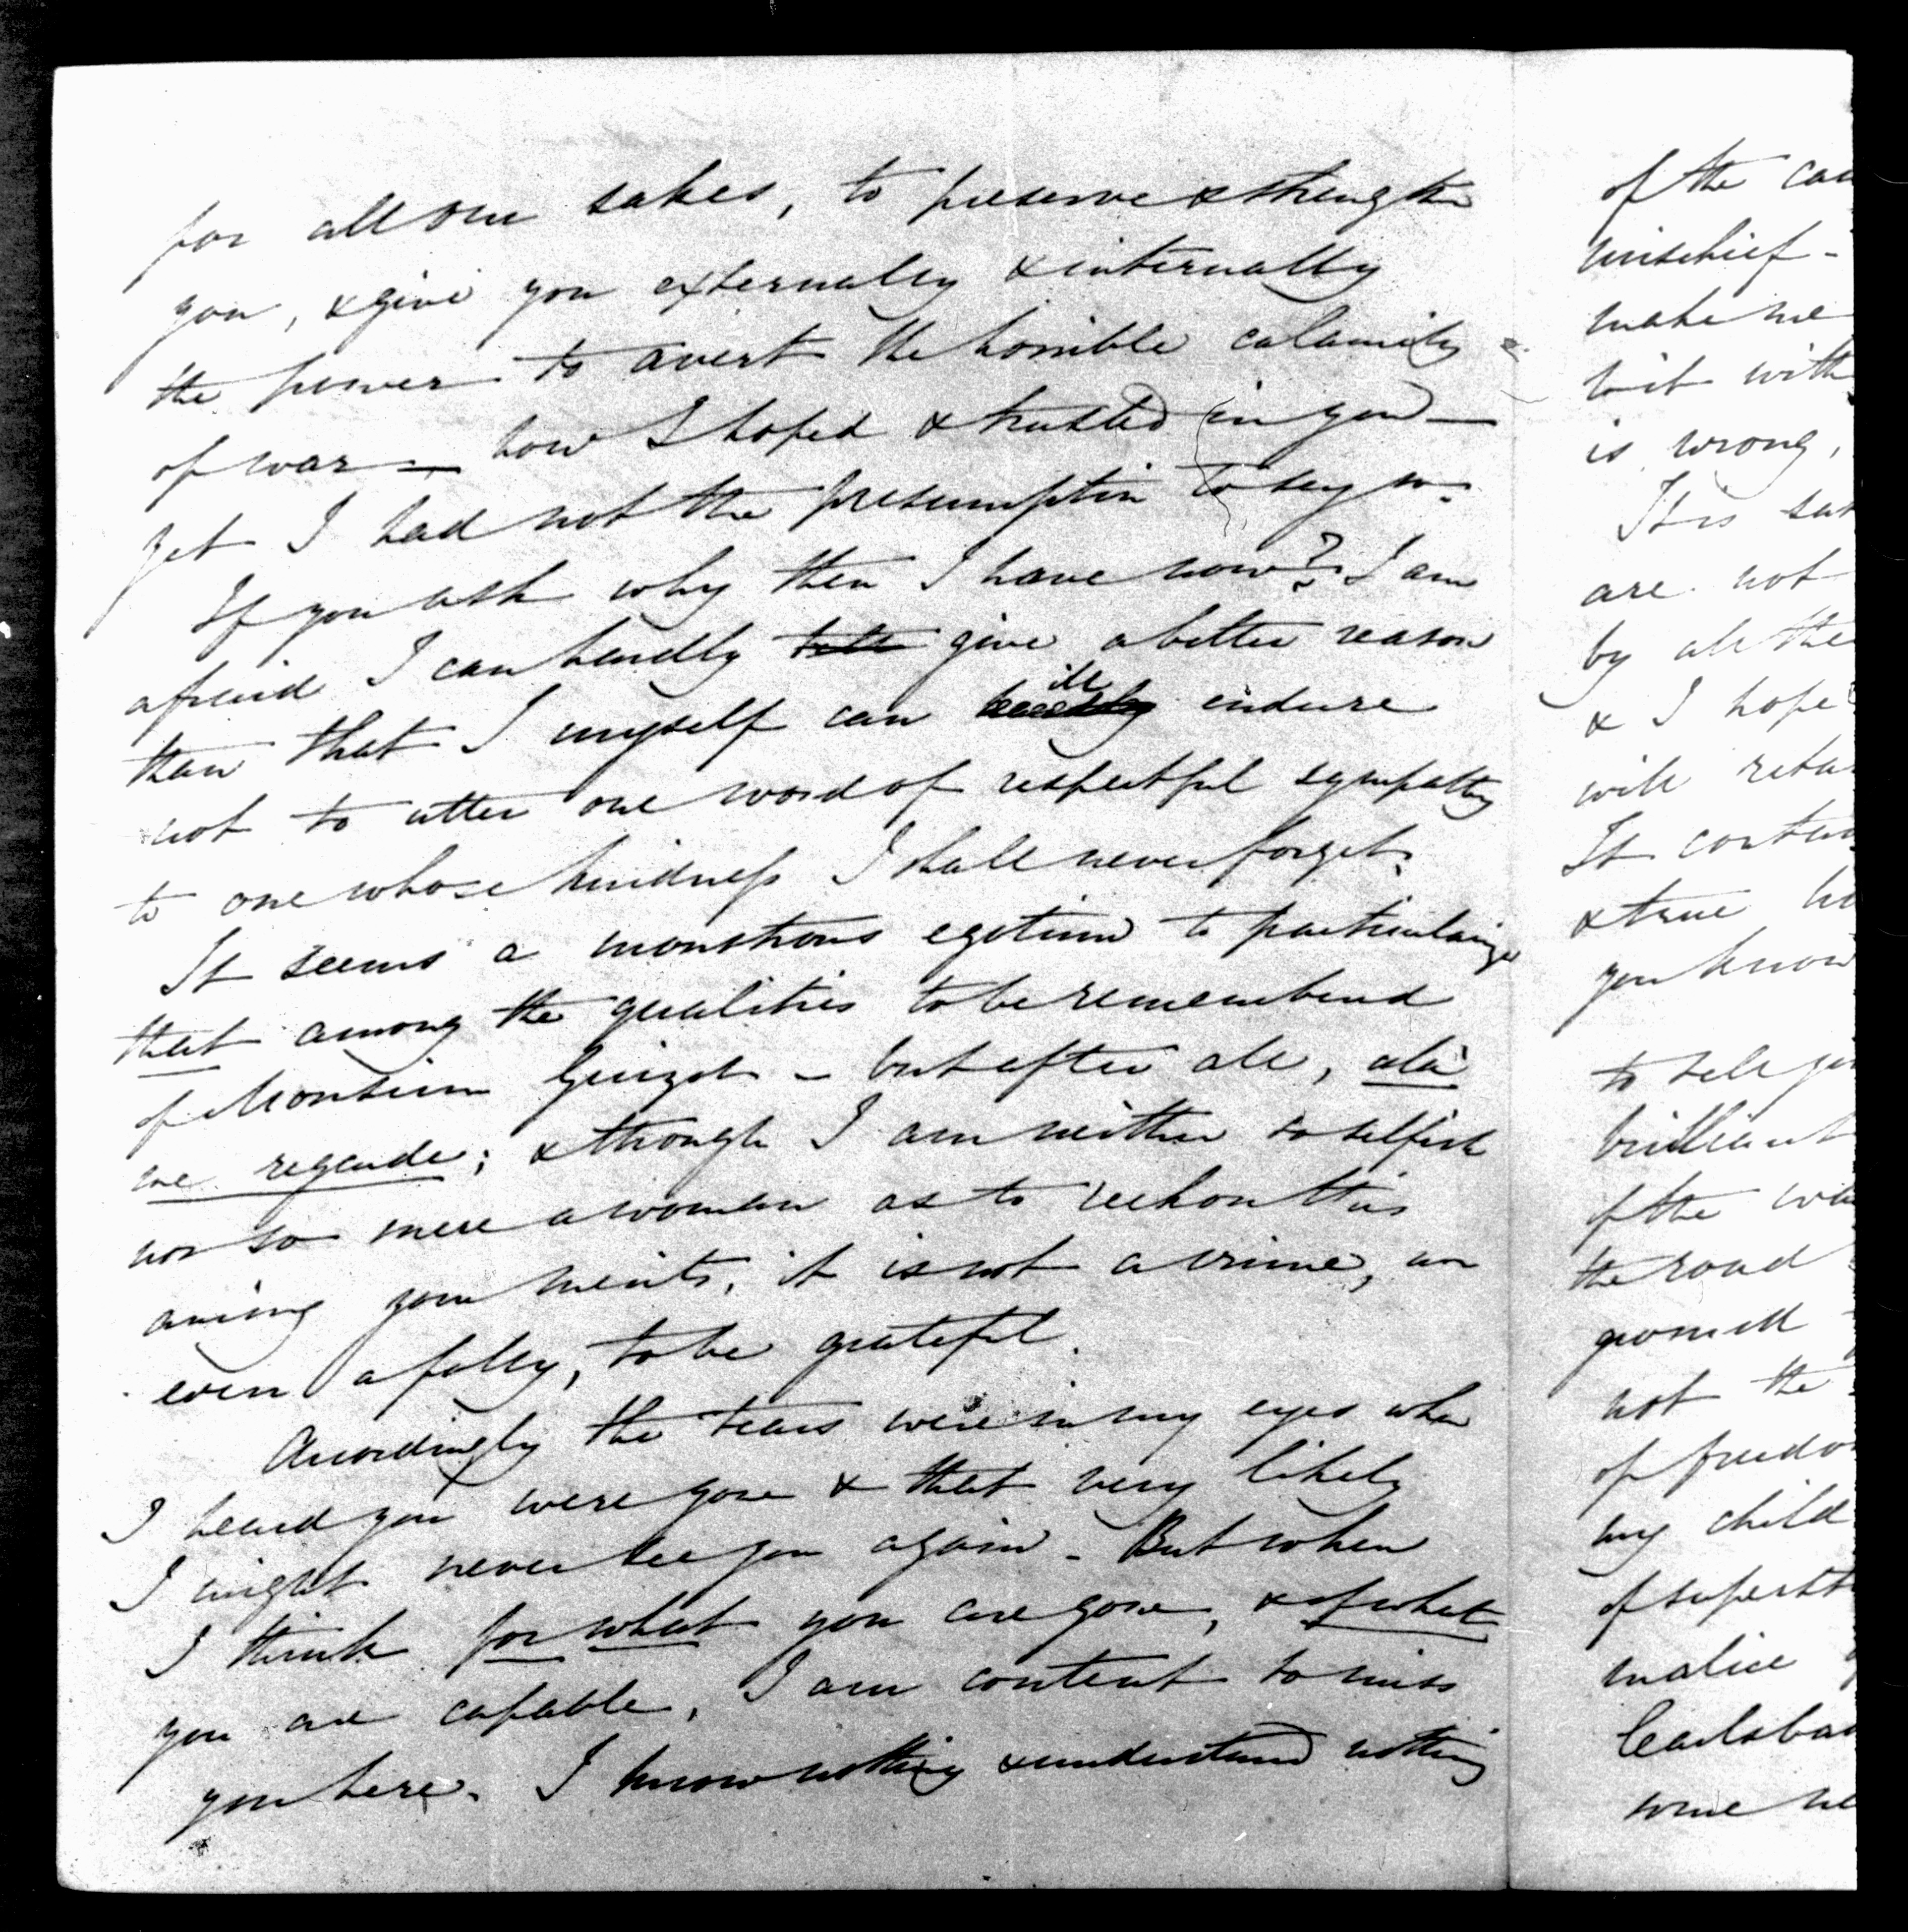 for all our sakes, to preserve & strengthen
you, & give you externally & internally
the power to avert the horrible calamity
of war — how I hoped & trusted in you —
yet I had not the presumption to say so.
If you ask why then I have now? I am
afraid I can hardly give a better reason
than that I myself can ill endure
not to utter one word of respectful sympathy
to one whose kindness I shall never forget.
It seems a monstrous egotism to particularize
that among the qualities to be remembered
of Monsieur Guizot – but after all, cela
me regarde; & though I am neither so selfish
nor so mere a woman as to reckon this
among your merits, it is not a crime, nor
even a folly, to be grateful.
Accordingly the tears were in my eyes when
I heard you were gone & that very likely
I might never see you again – But when
I think for what you are gone, & of what
you are capable, I am content to miss
you here. I know nothing & understand nothing
of the
mischief –
make me
with
is wrong,
It is
are not
by all the
& I hope
will
It
& true
you know
to tell
brilliant
of the
the road
not the
of
my child
of
malice
some